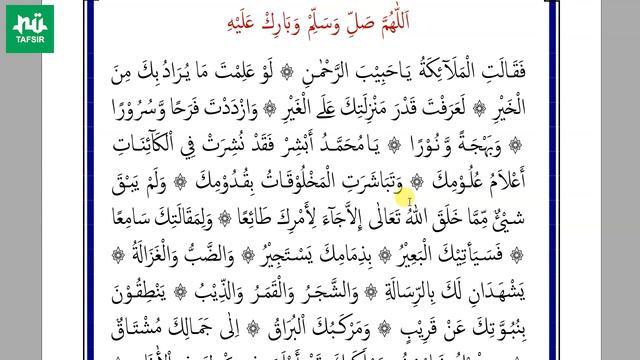 TAFSIR
اَللّٰهُمَّ صَلِّ وَسَلِّمْ وَبَارِكْ عَلَيْهِ
فَقَالَتِ الْمَلَآئِكَةُ يَاحَبِيْبَ الرَّحْمٰنِ ۞ لَوْ عَلِمْتَ مَا يُرَادُ بِكَ مِنَ
الْخَيْرِ ۞ لَعَرَفْتَ قَدْرَ مَنْزِلَتِكَ عَلَى الْغَيْرِ ۞ وَازْدَدْتَ فَرَحًا وَّسُرُوْرًا
۞ وَبَهْجَةً وَّنُوْرًا ۞ يَامُحَمَّدُ أَبْشِرْ فَقَدْ نُشِرَتْ فِي الْكَآئِنَاتِ
أَعْلَامُ عُلُوْمِكَ ۞ وَتَبَاشَرَتِ الْمَخْلُوْقَاتُ بِقُدُوْمِكَ ۞ وَلَمْ يَبْقَ
شَيْئٌ مِّمَّا خَلَقَ اللّٰهُ تَعَالٰى إِلَّاجَآءَ لِأَمْرِكَ طَائِعًا ۞ وَلِمَقَالَتِكَ سَامِعًا
۞ فَسَيَأْتِيْكَ الْبَعِيْرُ ۞ بِذِمَامِكَ يَسْتَجِيْرُ ۞ وَالضَّبُّ وَالْغَزَالَةُ ۞
يَشْهَدَانِ لَكَ بِالرِّسَالَةِ ۞ وَالشَّجَرُ وَالْقَمَرُ وَالذِّيْبُ ۞ يَنْطِقُوْنَ
بِنُبُوَّتِكَ عَنْ قَرِيْبٍ ۞ وَمَرْكَبُكَ الْبُرَاقُ ۞ اِلٰى جَمَالِكَ مُشْتَاقٌ